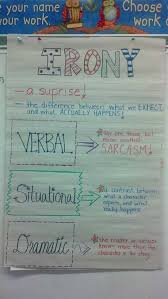 you
Choose
work.
work.
IRONY
- a suprise!
- the difference between what we EXPECT and
what ACTUALLY HAPPENS!
VERBAL
say one thing, but
mean another
SARCASM!
Situational
a contrast between
what a character
expects, and what
really happens
Dramatic
the reader, or audience
knows more than
the character in the story